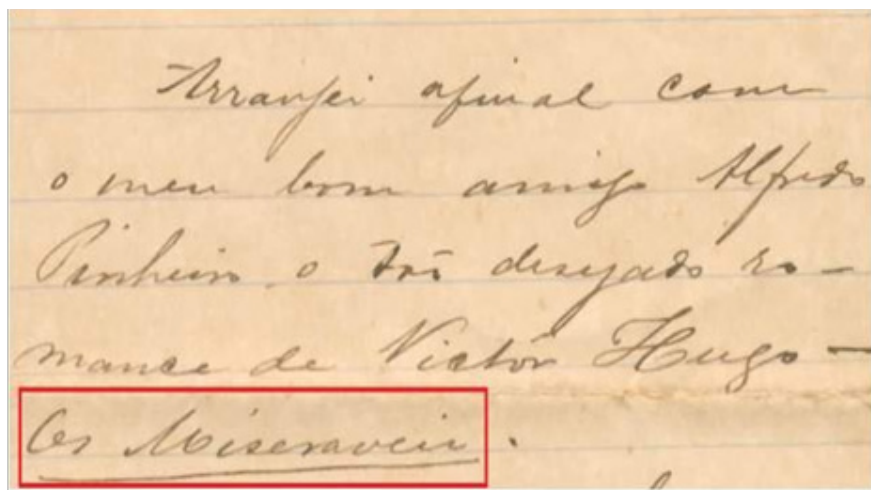 Arranjei afinal com
o meu bom amigo Alfredo
Pinheiro o tão desejado ro-
mance de Victor Hugo —
Os Miseraveis.